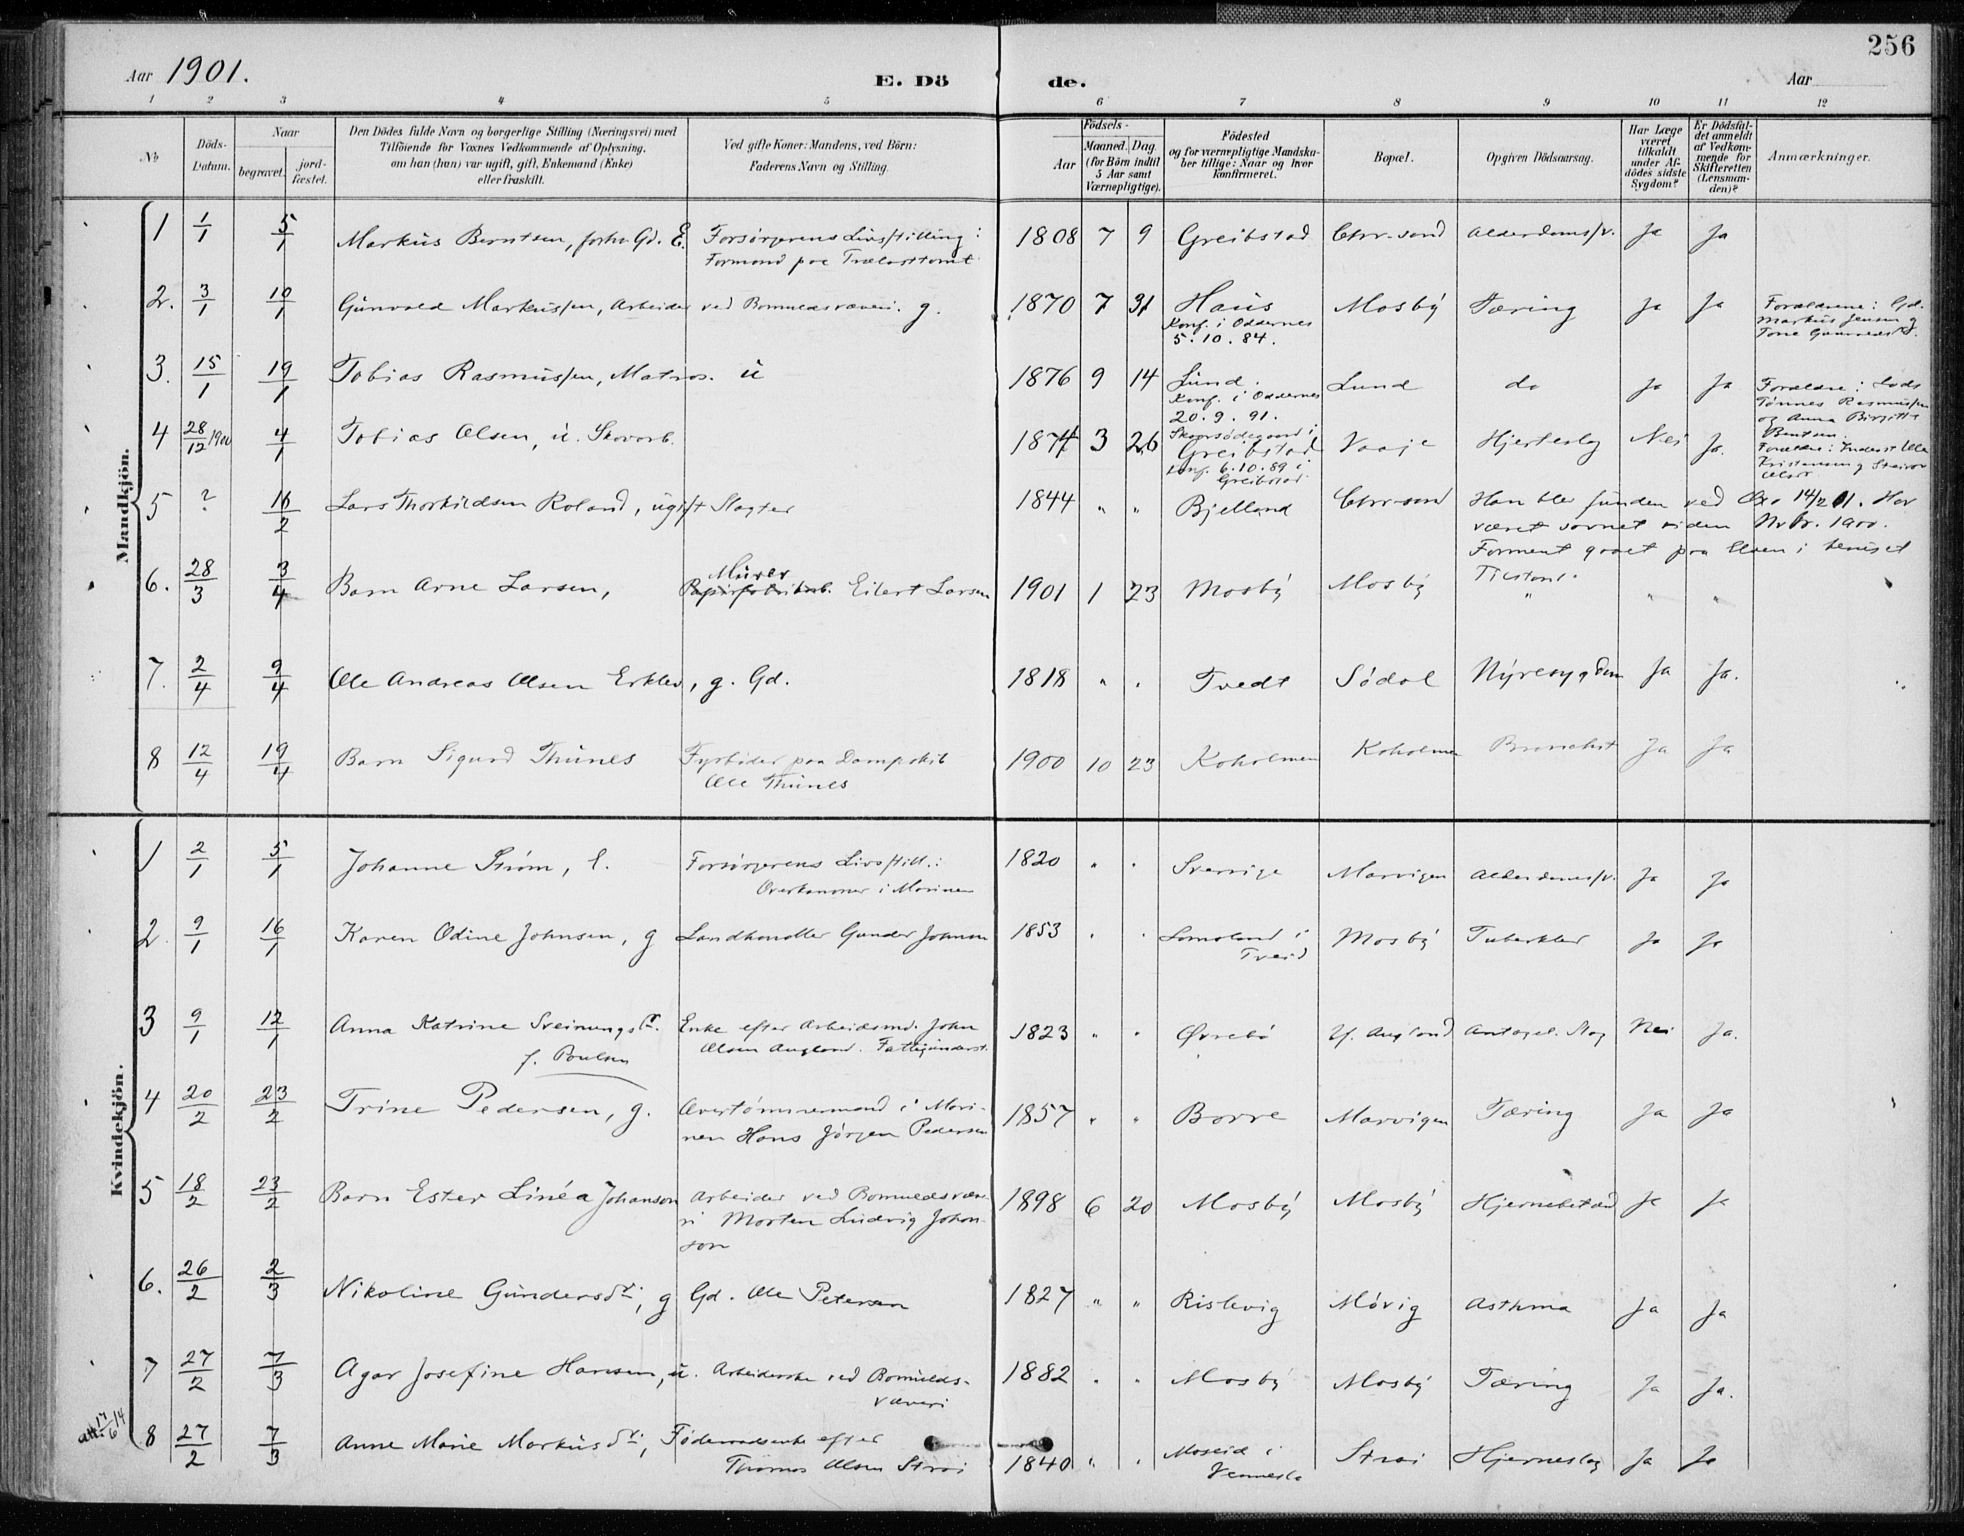 256
Aar 1901. E. Dö de. Aar
1 2 3 4 5 6 7 8 9 10 11 12
No
Döds-Datum.
Naar
begravet. jordfæstet.
Den Dödes fulde Navn og borgerlige Stilling (Næringsvei) med
Tilföiende for Voxnes Vedkommende af Oplysning,
om han (hun) var ugift, gift, Enkemand (Enke)
eller fraskilt.
Ved gifte Koner: Mandens, ved Börn:
Faderens Navn og Stilling.
Födsels-
Aar Maaned. Dag.
(for Börn indtil
5 Aar samt
Værnepligtige).
Födested
og for værnepligtige Mandska-
ber tillige: Naar og hvor
konfirmeret.
Bopæl.
Opgiven Dödsaarsag.
Har Læge
været
tilkaldt
under Af-
dödes sidste
Sygdom?
Er Dödsfal-
det anmeldt
af Vedkom-
mende for
Skifteretten
(Lensman-
den)?
Anmærkninger.
Mandkjön.
1 1/1 5/1 Markus Berntsen, forhv. Gd. E. Forsørgerens Livsstilling: 1808 7 9 Greibstad Chr-sand Alderdomssv. Ja Ja
Formand paa Trælasttomt
2. 3/1 10/1 Gunvald Markussen, Arbeider ved Bomuldsvæveri. g. 1870 7 31 Haus Mosby Tæring Ja Ja Forældrene: Gd.
Konf. i Oddernes
5.10.84.
Markus Jensen og
Tone
3. 15/1 19/1 Tobias Rasmussen, Matros. u 1876 9 14 Lund. Lund do Ja Ja Forældre: Lods
Konf. i Oddernes
20.9.91.
Tønnes Rasmussen
og Anna Birgitte
Bentsen.
4 28/12 1900 4/1 Tobias Olsen, u. Skovarb. 1874 3 26 Greibstad Vaaje Hjerteslag Nei Ja.
Konf. 6.10.89 i
Greibstad
5 ? 16/2 Lars Thorkildsen Roland, ugift Slagter 1844 " " Bjelland Chr-sand Han blev funden ved 14/2 01. Har
været savnet siden Nvbr. 1900.
Forment gaaet paa Elven i beruset
Tilstand.
6. 28/3 3/4 Barn Arne Larsen, Murer Eilert Larsen 1901 1 23 Mosby Mosby " " "
7. 2/4 9/4 Ole Andreas Olsen Erklev, g. Gd. 1818 " " Tvedt Södal Nyresygdom Ja Ja.
8 12/4 19/4 Barn Sigurd Thunes Fyrbøder paa Dampskib 1900 10 23 Koholmen Koholmen Bronchit Ja Ja
Ole Thunes
Kvindekjön.
1 2/1 5/1 Johanne Strøm, E. Forsørgerens Livsstill.: 1820 " " Sverrige Marvigen Alderdomssv. Ja Ja
Overkanoner i Marinen
2. 9/1 16/1 Karen Odine Johnsen, g Landhandler Gunder Johnsen 1853 " " Lomeland i Mosby Tuberkler Ja Ja
Tveid
3 9/1 12/1 Anna Katrine Sveinungsdr. Enke efter Arbeidsmd. John 1823 " " Øvrebö Y. Augland Antagel. Slag Nei Ja.
f. Poulsen Olsen Augland. Fattigunderst.
4 20/2 23/2 Trine Pedersen, g. Overtømmermand i Mari- 1857 " " Borre Marvigen Tæring Ja Ja
nen Hans Jörgen Pedersen
5 18/2 23/2 Barn Ester Linéa Johanson Arbeider ved Bomuldsvæve- 1898 6 20 Mosby Mosby Hjernebetænd Ja Ja
ri Morten Ludvig Johan-
son
6. 26/2 2/3 Nikoline Gundersdr., g Gd. Ole Petersen 1827 " " Rislevig Møvig Asthma Ja Ja
7 27/2 7/3 Agar Josefine Hansen, u. Arbeiderske ved Bomulds- 1882 " " Mosby Mosby Tæring Ja Ja.
væveri
att. 17/6 14 8 27/2 7/3 Anne Marie Markusdr., Föderaadsenke efter 1840 " " Moseid i Strai Hjerneslag Ja Ja
Thomas Olsen Strai Vennesla